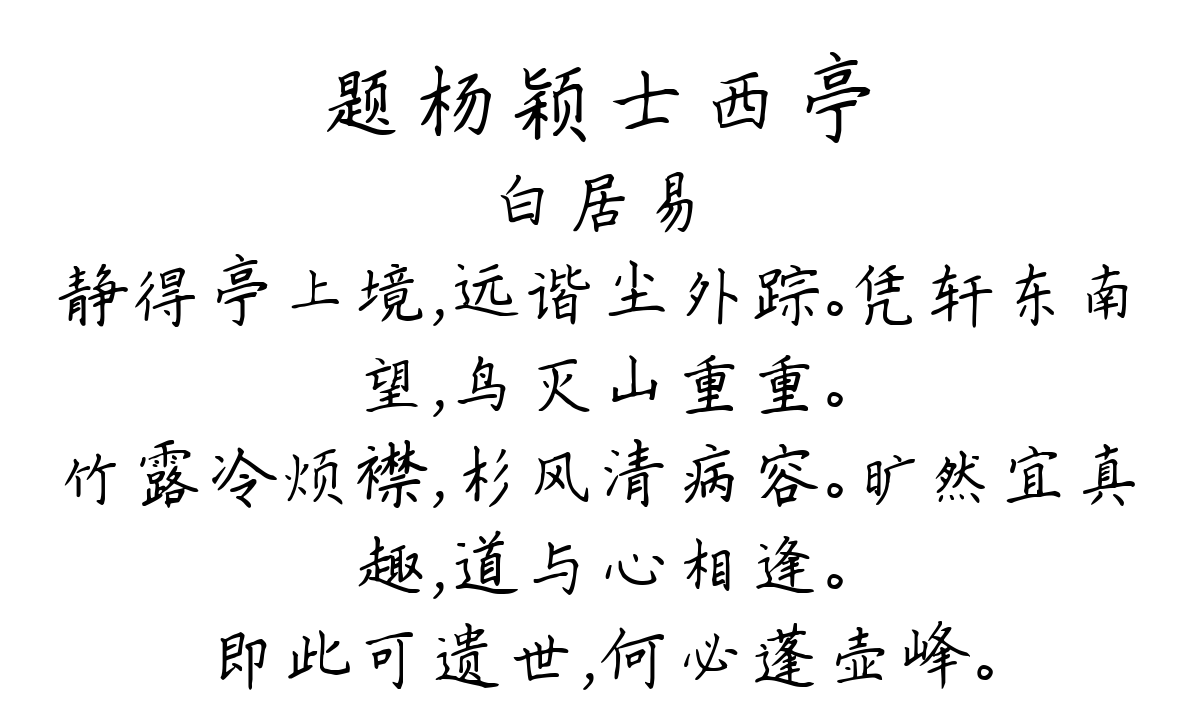 题杨颖士西亭
白居易
静得亭上境,远谐尘外踪。凭轩东南
望,鸟灭山重重。
竹露冷烦襟,杉风清病容。旷然宜真
趣,道与心相逢。
即此可遗世,何必蓬壶峰。